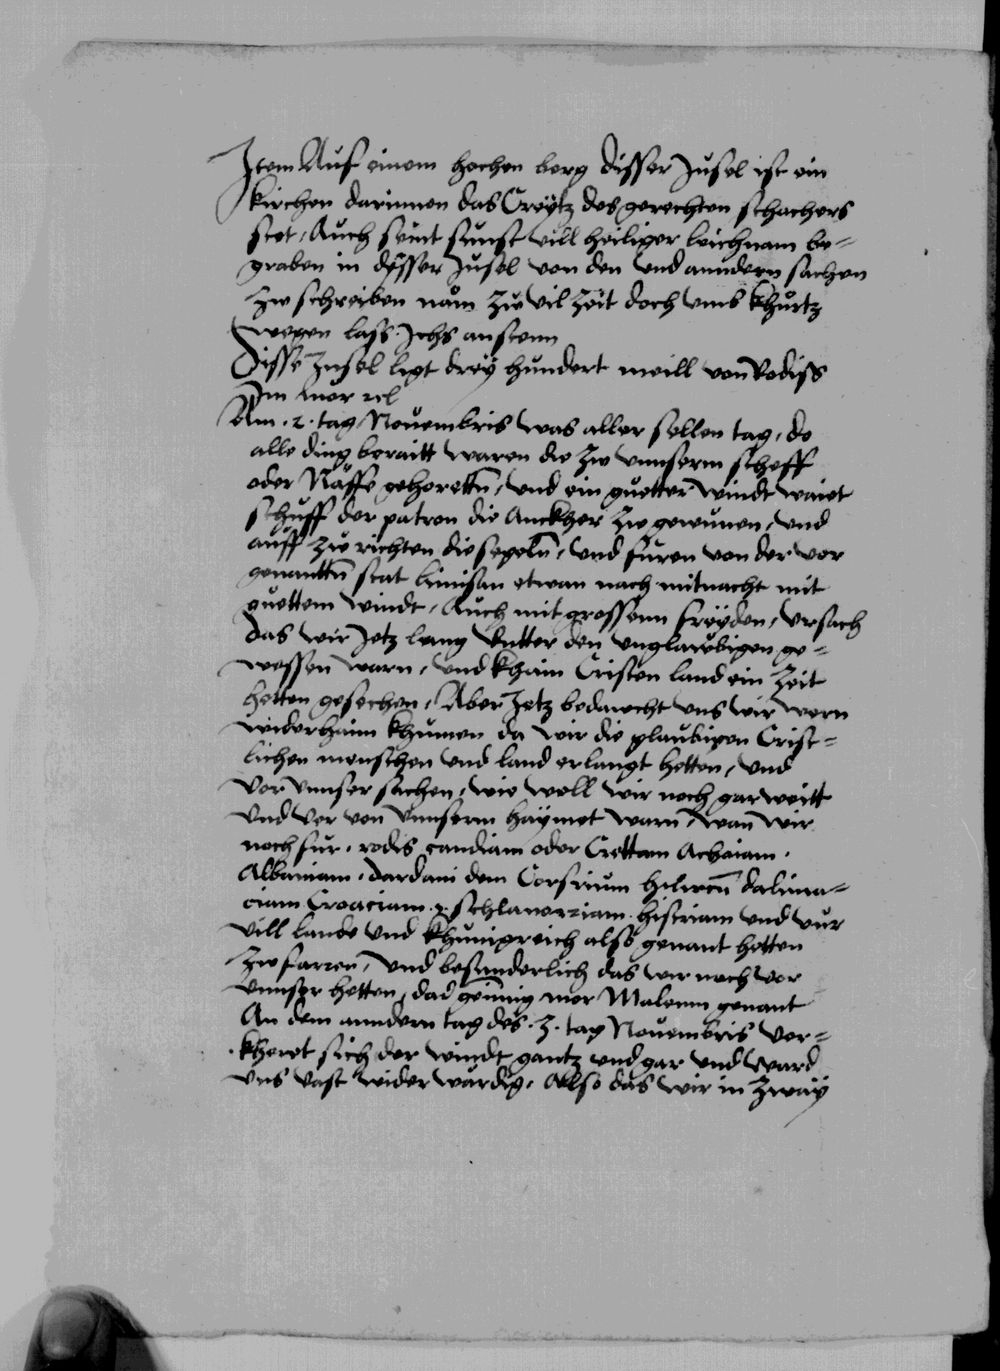 Item Auf einem hochen berg disser Jnsel ist ein
kirchen darinnen das Creytz des gerechten schachers
stet, Auch seint sunst vill heiliger leichnam be-
graben in disser Jnsel von den vnd anndern sachen
zw schreiben nam zw vil zeit doch vmb khurtz
wegen lass Jchs ansteen
Disse Jnsel ligt drey hundert meill von Rodiss
Jm mer
Am .2. tag Nouembris was aller sellen tag, do
alle ding beraitt waren die zw vnnserm scheff
oder Naffe gehorettn, vnd ein guetter windt waiet
schuff der patron die Anckher zw gewunen, vnd
auff zw richten die segeln, vnd furen von der vor
genanttn stat limisan etwan nach mitnacht mit
guettem windt, Auch mit grossenn freyden, vrsach
das wir Jetz lang vntter den vnglawbigen ge-
wessen warn, vnd khain Cristen land ein zeit
hetten gesechen, Aber Jetz bedawcht vns wir wern
widerhaim khumen da wir die glaubigen Crist-
lichen menschen vnd land erlangt hetten, vnd
vor vnnser sachen, wie woll wir noch gar weitt
vnd ver von vnnserm haymet warn, wan wir
noch fur, rodis candiam oder Crettam Achaiam,
Albaniam, dardani dem Corsirium dalima-
ciam Croaciam histriam vnd
vill lande vnd khunigreich alss genant hetten
zw farren, vnd besunderlich das wir noch vor
vnnser hetten, das mer Maleum genant
An dem anndern tag des .3. tag Nouembris ver-
kheret sich der windt gantz vnd gar vnd ward
vns vast widerwardig, Allso das wir in zway